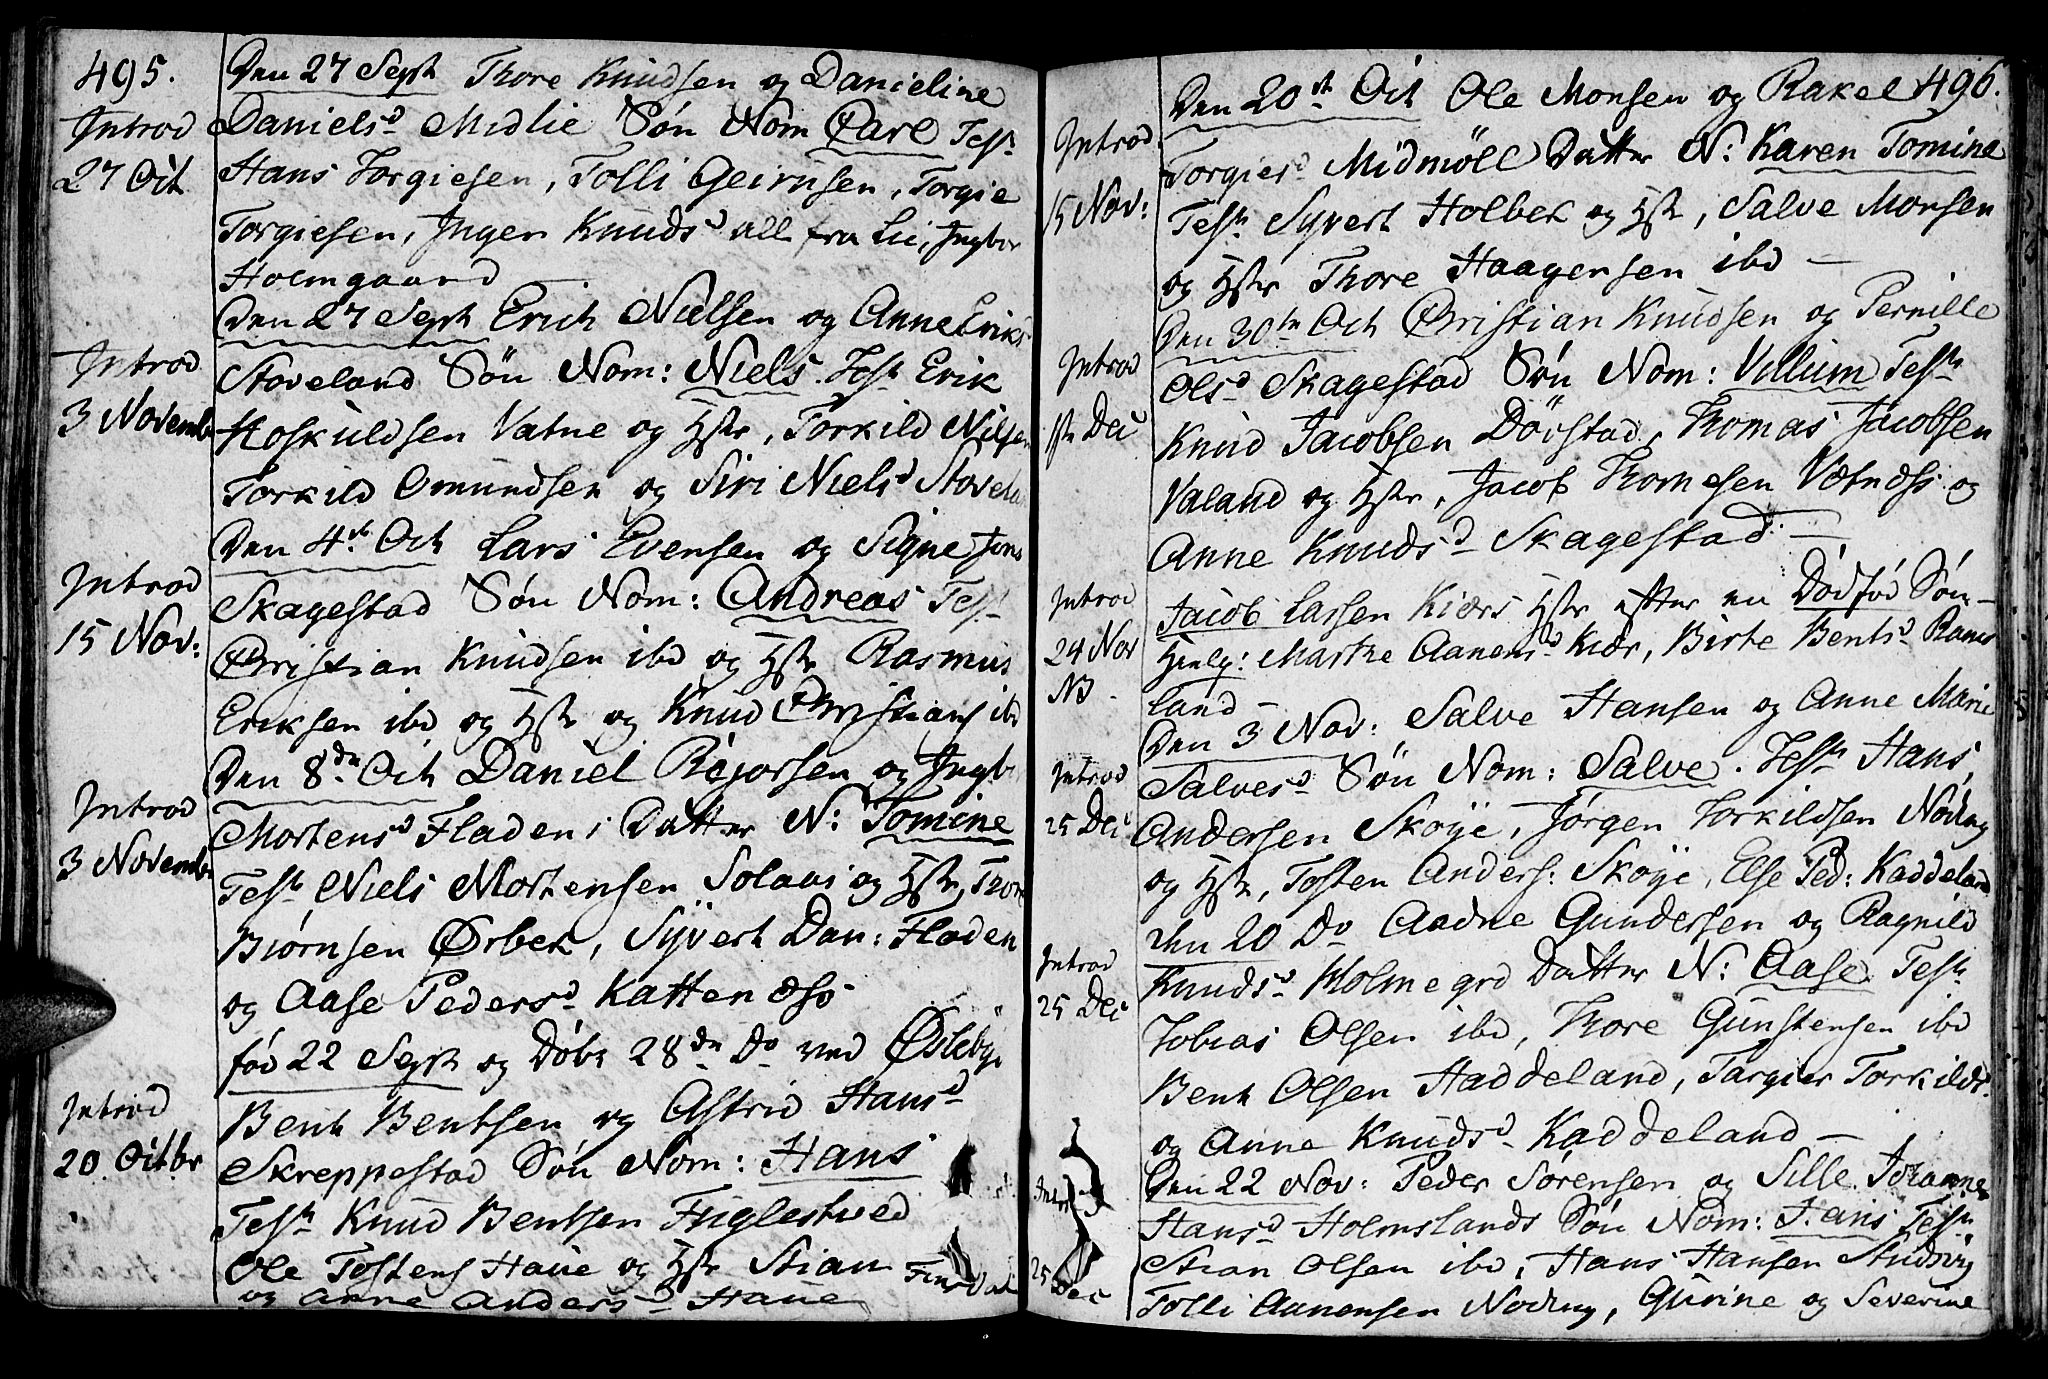 495.
Introd
27 Oct
Den 27 Sept Thore Knudsen og Danieline
Danielsd Midlie Søn Nom Carl Test
Hans Torgiesen, Tolli Geirusen, Torgie
Torgiesen, Inger Knudsd all fra Lie, Ingbor
Holmgaard
Introd
3 Novemb
Den 27 Sept Erich Nielsen og Anne Eriks
Stoveland Søn Nom: Niels. Test Erik
Hoskuldsen Vatne og Hstr, Torkild Nilsen
Torkild Omundsen og Siri Nielsd Stovela
Introd
15 Nov:
Den 4de Oct Lars Evensen og Signe Jens
Skagestad Søn Nom: Andreas Test
Christian Knudsen ibd og Hstr Rasmus
Eriksen ibd og Hstr og Knud Christians ibd
Introd
3 Novemb
Den 8de Oct Daniel Rejorsen og Ingb
Mortensd Fladen; Datter N: Tomine
Test Niels Mortensen Solaas og Hstr, Thore
Biørnsen Ørbek, Syvert Dan: Fladen
og Aase Pedersd Kattenæss
Introd
20. Octbr
fød 22 Sept og Døbt 28de Do ved Øslebye
Bent Bentsen og Astrid Hansd
Skreppestad Søn Nom: Hans
Test Knud Bentsen Fuglestved
Ole Tostens Haue og Hstr Stian
og Anne Andersd Haue
496.
Introd
15 Nov:
Den 20st Oct Ole Monsen og Rakel
Torgiersd Midmøll Datter N: Karen Tomine
Test Syvert Holbek og Hstr, Salve Monsen
og Hstr Thore Haagensen ibd —
Introd
1ste Dec
Den 30te Oct Christian Knudsen og Pernille
Olsd Skagestad Søn Nom: Villum Test
Knud Jacobsen Døvstad, Thomas Jacobsen
Valand og Hstr, Jacob Thomesen Vætnæss og
Anne Knudsd Skagestad —
Introd
24 Nov
NB
Jacob Lassen Kiærs Hstr efter en Dødfød Søn —
Henlg: Marthe Aanensd Kiær, Birte Bentsd Rams
land —
Introd
25 Dec
Den 3 Nov: Salve Hansen og Anne Marie
Salvesd Søn Nom: Salve. Test Hans
Andersen Skøye, Jørgen Torkildsen Noding
og Hstr, Tosten Anders: Skøye, Else Ped: Kaddeland
Introd
25 Dec
den 20 Do Aadne Gundersen og Ragnild
Knudsd Holmegrd Datter N: Aase Test
Tobias Olsen ibd, Thore Gunstensen ibd
Bent Olsen Haddeland, Targier Torkilds
og Anne Knudsd Kaddeland —
25 Dec
Den 22 Nov: Peder Sørensen og Sille Johanne
Hansd Holmslands Søn Nom: Hans Test
Stian Olsen ibd, Hans Hansen
Tolli Aanensen Noding, Gurine og Severine